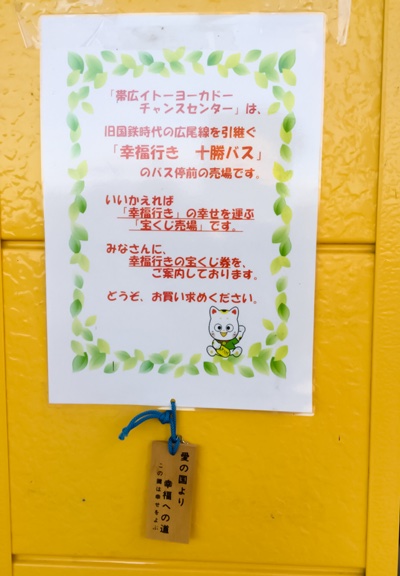 「帯広イトーヨーカドー
チャンスセンター」は、
旧国鉄時代の広尾線を引継ぐ
「幸福行き 十勝バス」
のバス停前の売場です。
いいかえれば
「幸福行き」の幸せを運ぶ
「宝くじ売場」です。
みなさんに、
幸福行きの宝くじ券を、
ご案内しております。
どうぞ、お買い求めください。
愛の国より
幸福への道
この鍵は幸せをよぶ